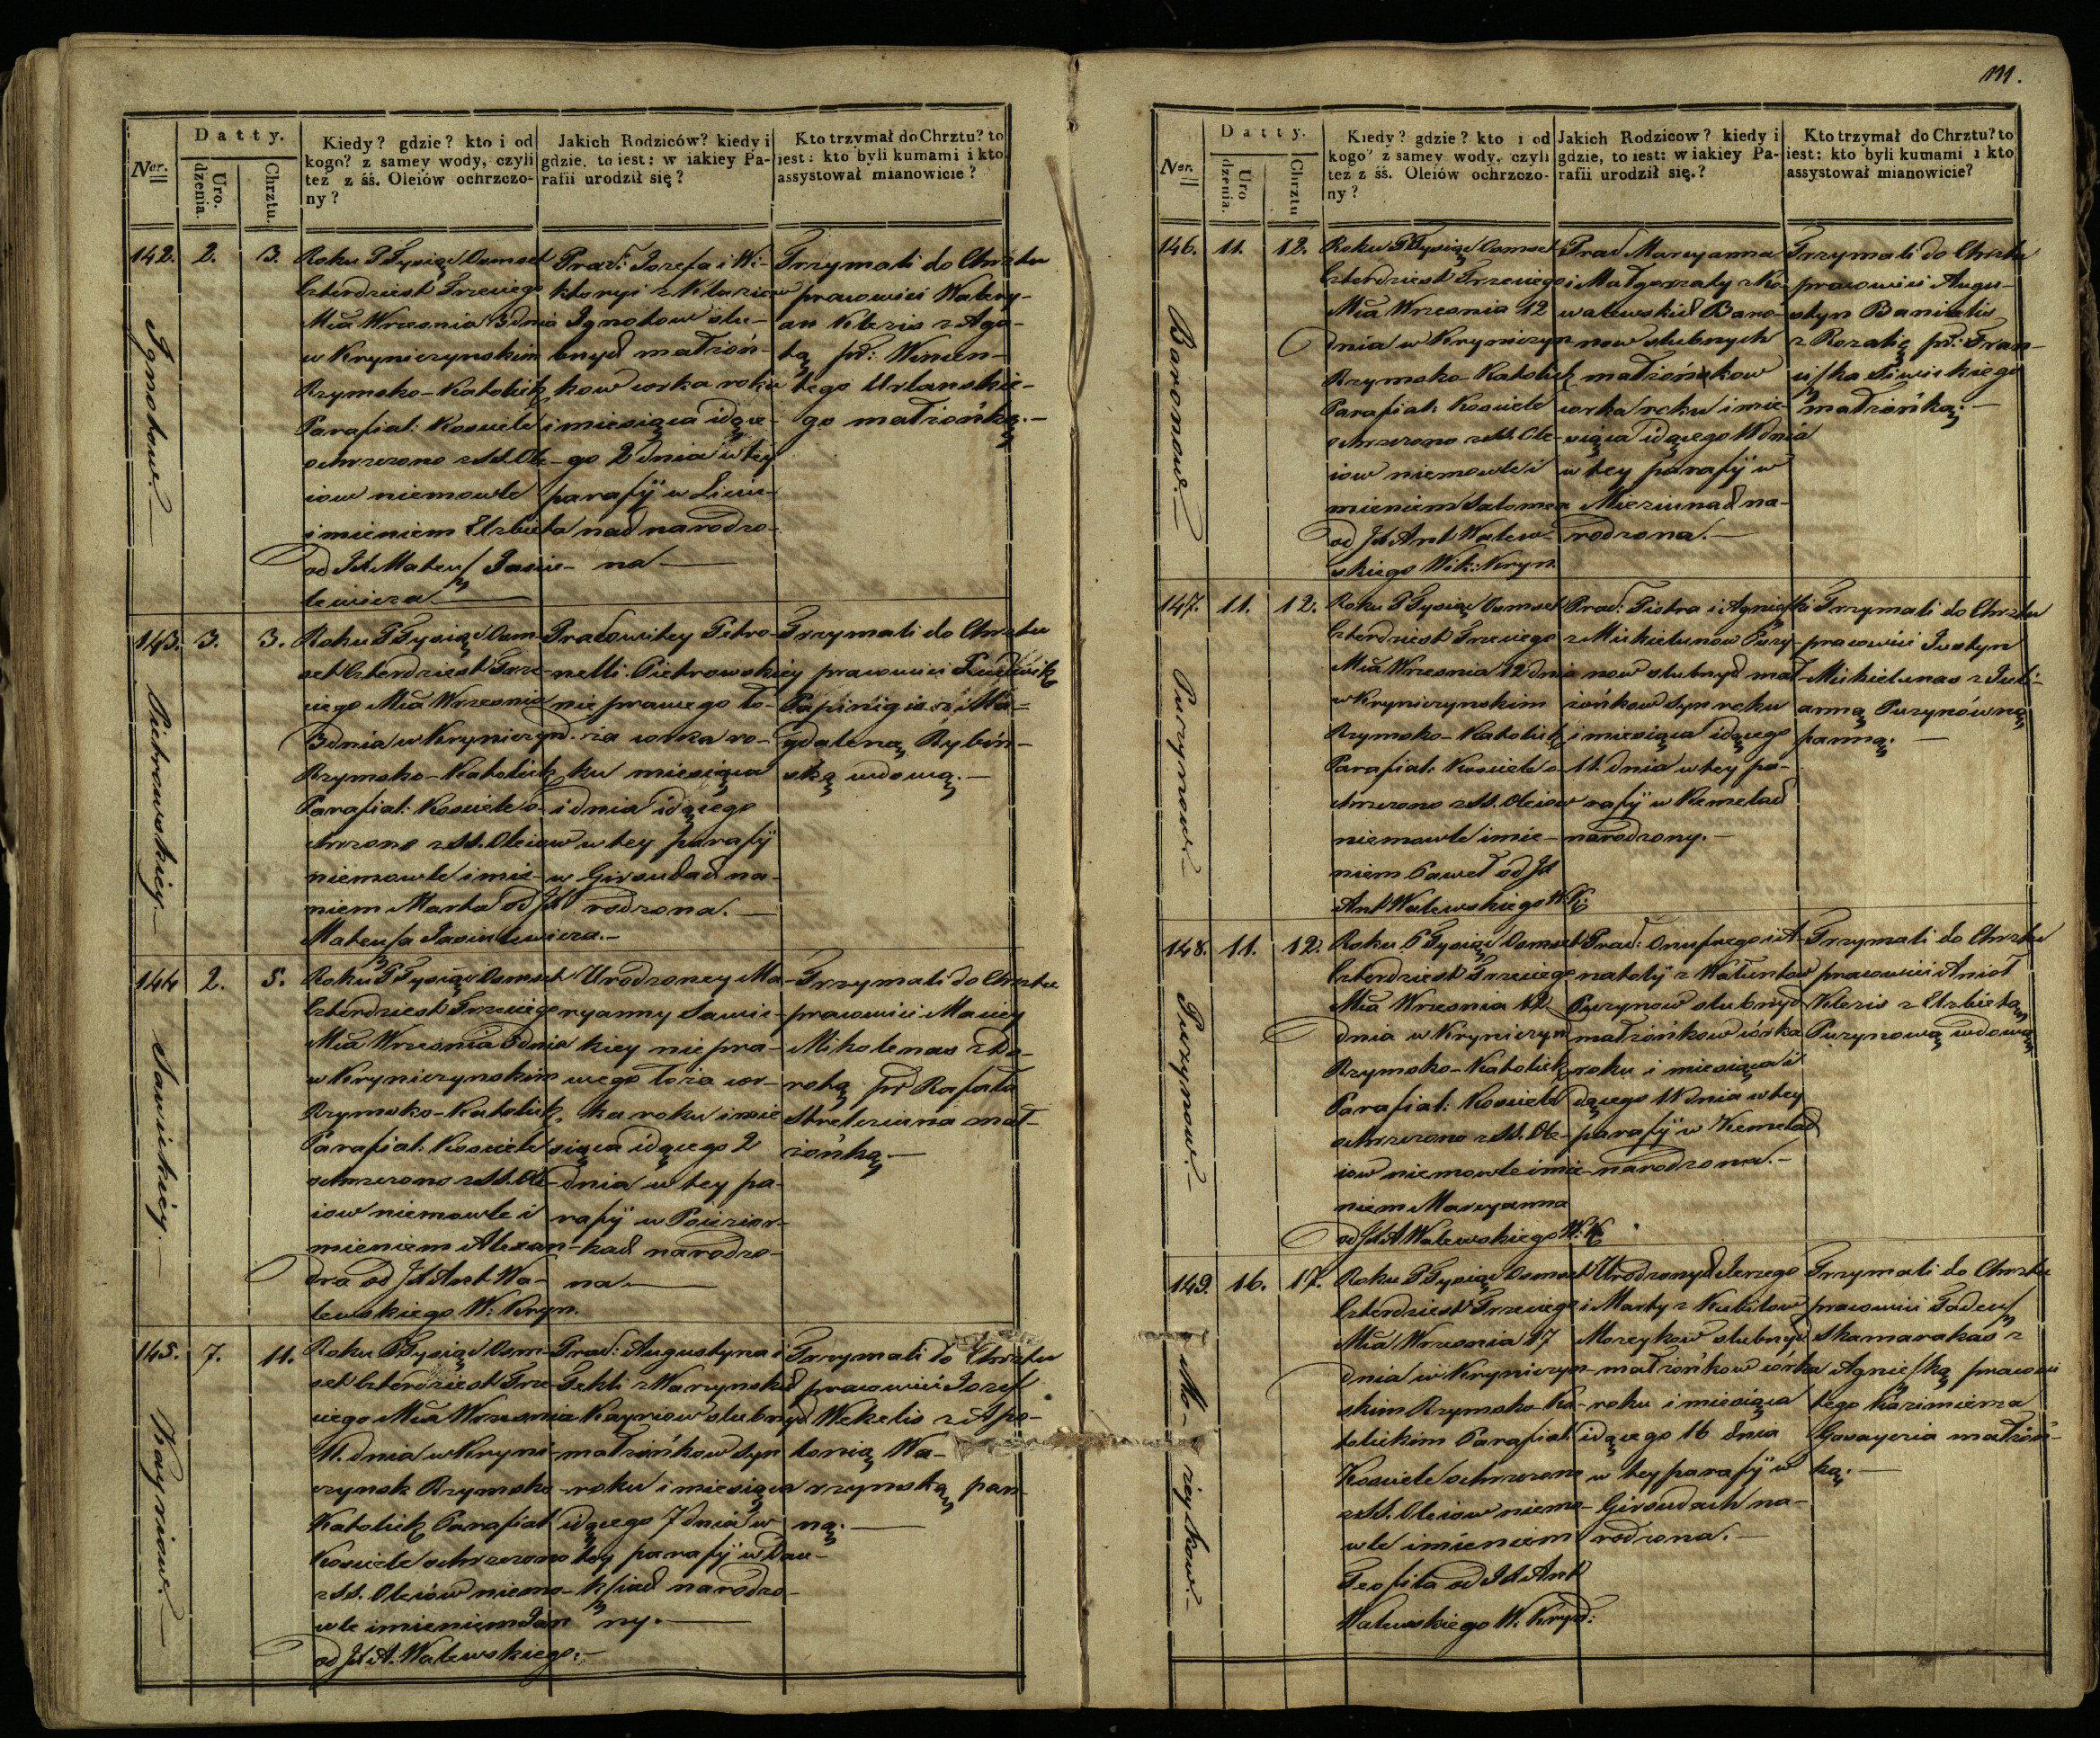 Ner.
Datty.
Uro-
dzenia.
Chrztu.
Kiedy? gdzie? kto i od
kogo? z samey wody, czyli
też z śś. Oleiów ochrzczo-
ny?
Jakich Rodziców? kiedy i
gdzie, to iest: w iakiey Pa-
rafii urodził się?
Kto trzymał do Chrztu? to
iest: kto byli kumami i kto
assystował mianowicie?
142. 2. 3.
Ignotow.
Roku P Tysiąc Osmset
Czterdziest Trzeciego
Mca Wrzesnia 3 dnia
w Kryniczynskim
Rzymsko-Katolick
Parafial: Kosciele
ochrzczono z SS. Ole-
iow niemowle
imieniem Elzbieta
od JX Mateusz Jasiu-
lewicza
Prac: Jozefa i Wi-
ktoryi z Kleziow
Ignotow slu-
bnych małżoń-
kow corka roku
i miesiąca idące-
go 2 dnia w tey
parafij w
nad narodzo-
na
Trzymali do Chrztu
pracowici Walery-
an Klezis z Aga-
tą pr: Wincen-
tego Urlanskie-
go małżonką.
143. 3. 3.
Pietrowskiey
Roku P Tysiąc Osm-
set Czterdziest Trze-
ciego Mca Wrzesnia
3 dnia w Kryniczyn
Rzymsko-Katolick
Parafial: Kosciele o-
chrzczono z SS. Oleiow
niemowle imie-
niem Marta od JX
Mateusza Jasiulewicza.
Pracowitey Petro-
nelli Pietrowskiey
nie prawego ło-
ża corka ro-
ku miesiąca
i dnia idącego
w tey parafij
w Girsudach na-
rodzona.
Trzymali do Chrztu
pracowici Ludwik
Papinigis i Ma-
gdalena Rybiń-
ską wdową.
144 2. 5.
Sawickiey.
Roku P Tysiąc Osmset
Czterdziest Trzeciego
Mca Wrzesnia 5 dnia
w Kryniczynskim
Rzymsko-Katolick
Parafial: Kosciele
ochrzczono z SS. Ole-
iow niemowle i
mieniem Alexan-
dra od JX Ant Wa-
lewskiego W: Kryn.
Urodzoney Ma-
ryanny Sawic-
kiey nie pra-
wego łoża cor-
ka roku i mie
siąca idącego 2
dnia w tey pa-
rafij w Poiezior-
kach narodzo-
na
Trzymali do Chrztu
pracowici Maciey
Mikolenas z Do-
rotą pr Rafała
Streleziuna mał-
żonką
145. 7. 11.
Kayriow.
Roku P Tysiąc Osm-
set Czterdziest Trze-
ciego Mca Wrzesnia
11. dnia w Kryni-
czynsk Rzymsko
Katolick Parafial
Kosciele ochrzczono
z SS. Oleiów niemo-
wle imieniem Jan
od JX A. Walewskiego.
Prac: Augustyna i
Tekli z Warzynskich
Kayriow slubnych
małżońkow syn
roku i miesiąca
idącego 7 dnia w
tey parafij w Dau-
kszach narodzo-
ny.
Trzymali do Chrztu
pracowici Jozef
Wekelis z Apo-
lonią Wa-
rzynską pan-
ną.
111.
Ner.
Datty.
Uro
dzenia.
Chrztu
Kiedy? gdzie? kto i od
kogo? z samey wody, czyli
też z śś. Oleiów ochrzczo-
ny?
Jakich Rodzicow? kiedy i
gdzie, to iest: w iakiey Pa-
rafii urodził się.?
Kto trzymał do Chrztu? to
iest: kto byli kumami i kto
assystował mianowicie?
146. 11. 12.
Baronow.
Roku P Tysiąc Osmset
Czterdziest Trzeciego
Mca Wrzesnia 12
dnia w Kryniczyn
Rzymsko-Katolick
Parafial: Kosciele
ochrzczono z SS. Ole-
iow niemowle i
mieniem Salomea
od JX Ant Walew-
skiego Wik: Kryn.
Prac Maryanna
i Małgorzaty z Ko-
walewskich Baro-
now slubnych
małżońkow
corka roku i mie-
siąca idącego 11 dnia
w tey parafij w
Mieziunach na-
rodzona.
Trzymali do Chrztu
pracowici Augu-
styn Baniulis
z Rozalią pr: Fran-
ciszka Siwickiego
małżońką.
147. 11. 12.
Puzynow
Roku P Tysiąc Osmset
Czterdziest Trzeciego
Mca Wrzesnia 12 dnia
w Kryniczynskim
Rzymsko-Katolick
Parafial: Kosciele o-
chrzczono z SS. Oleiow
niemowle imie-
niem Paweł od JX
Ant Walewskiego W. K.
Prac: Piotra i Agnieszki
z Mikielunow Puzy-
now slubnych mał-
żońkow syn roku
i miesiąca idącego
11. dnia w tey pa-
rafij w Kemelach
narodzony.
Trzymali do Chrztu
pracowici Justyn
Mikielunas z Juli-
anną Puzynówną
panną.
148. 11. 12.
Puzynow.
Roku P Tysiąc Osmset
Czterdziest Trzeciego
Mca Wrzesnia 12
dnia w Kryniczyn
Rzymsko-Katolick
Parafial: Kosciele
ochrzczono z SS. Ole-
iow niemowle imie-
niem Maryanna
od JX A Walewskiego W: K
Prac: Onufrego i A-
natolij z Wałuntow
Puzynow slubnych
małżońkow córka
roku i miesiąca i
dącego 11 dnia w tey
parafij w Kemelach
narodzona.
Trzymali do Chrztu
pracowici Anioł
Klezis z Elzbietą
Puzynową wdową
149. 16. 17.
Mo-
zeykow.
Roku P Tysiąc Osmset
Czterdziest Trzeciego
Mca Wrzesnia 17
dnia w Kryniczyn-
skim Rzymsko-Ka-
tolickim Parafial
Kosciele ochrzczono
z SS. Oleiow niemo-
wle imieniem
Teofila od JX Ant
Walewskiego W. Kryn:
Urodzonych Jerzego
i Marty z Kubilow
Mozeykow slubnych
małżońkow córka
roku i miesiąca
idącego 16 dnia
w tey parafij w
Girsudach na-
rodzona.
Trzymali do Chrztu
pracowici Tadeusz
Skamarakas z
Agnieszką pracowi
tego Kazimierza
małżoń-
ką.